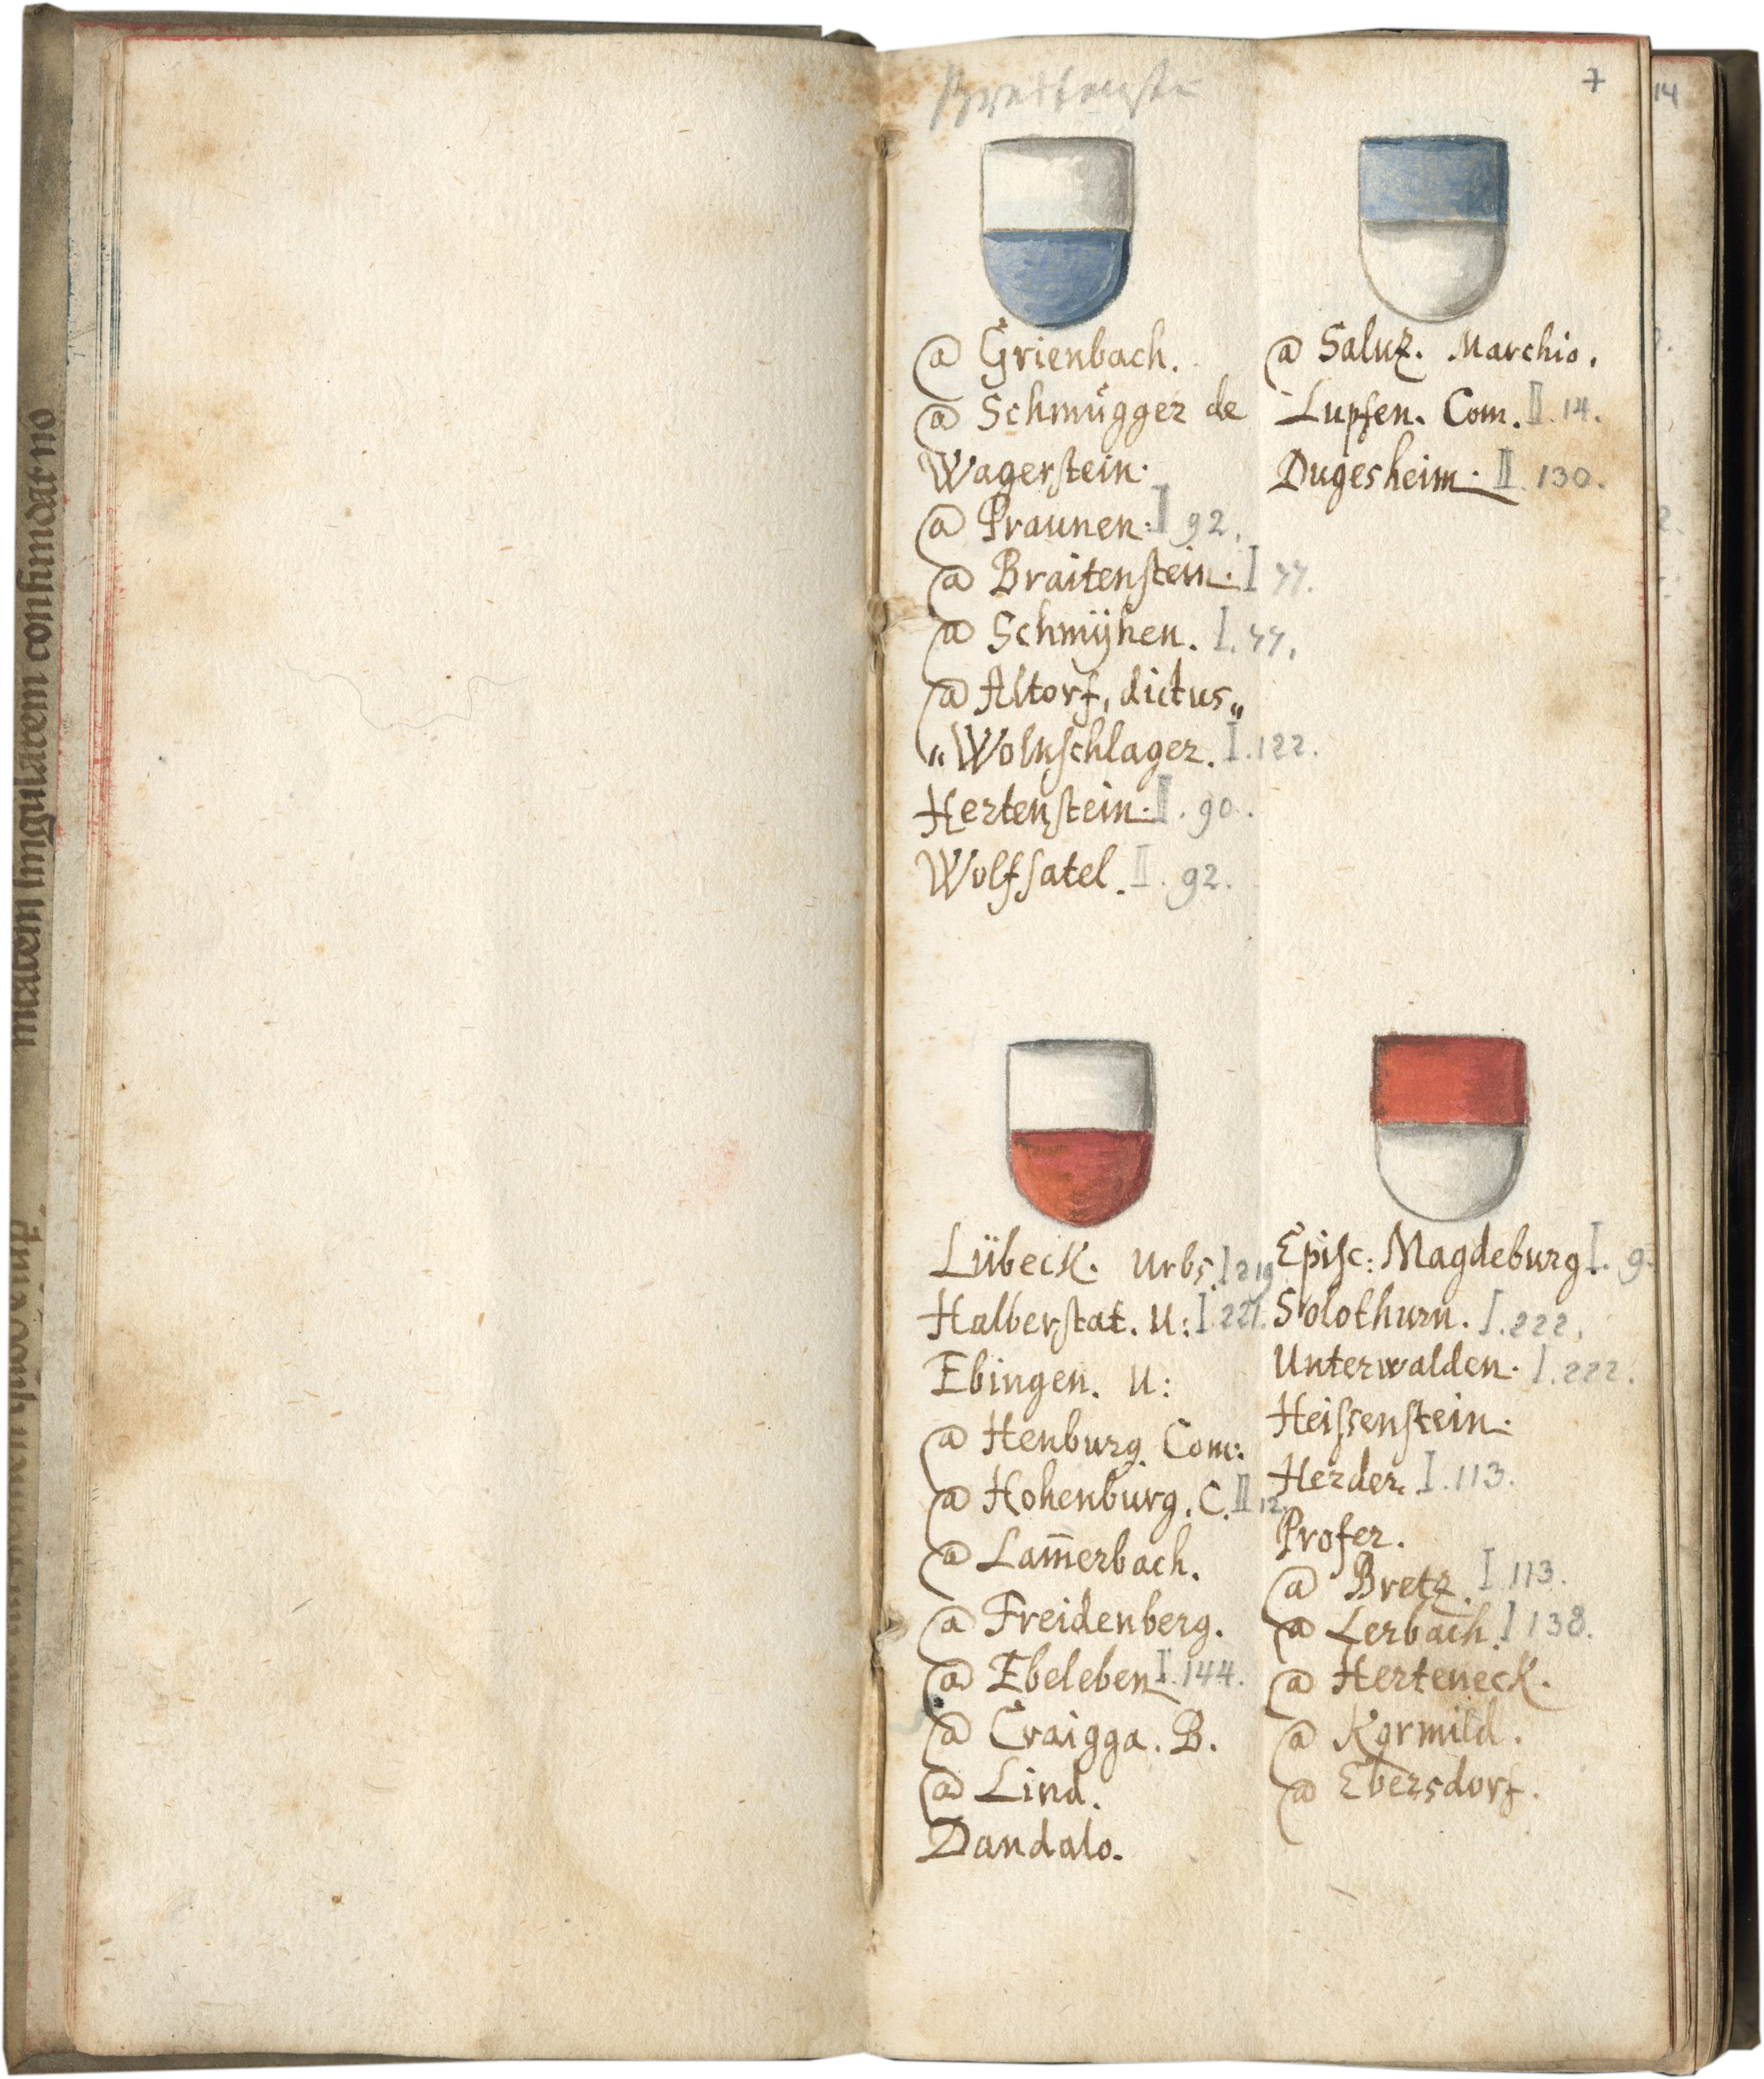 7
14
@ Grienbach.
@ Schmůgger de
Wagerstein.
@ Praunen. I 92.
@ Braitenstein. I 77.
@ Schmÿhen. I. 77.
@ Altorf, dictus„
„Wolkschlager. I. 122.
Hertenstein. II. 90.
Wolfsatel. II. 92.
@ Saluz. Marchio.
Lupfen. Com. II. 14.
Dugesheim. II. 130.
Lübeck. Urbs. I 219
Halberstat. U: I. 221.
Ebingen. U:
@ Henburg. Com:
@ Hohenburg. C. II 12.
@ Lam̄erbach.
@ Freidenberg.
@ Ebeleben I. 144.
@ Craigga. B.
@ Lind.
Dandalo.
Episc: Magdeburg I. 9.
Solothurn. I. 222.
Unterwalden. I. 222.
Heissenstein.
Herder. I. 113.
Profer.
@ Bretz. I. 113.
@ Lerbach. I 138.
@ Herteneck.
@ Kormild.
@ Ebersdorf.